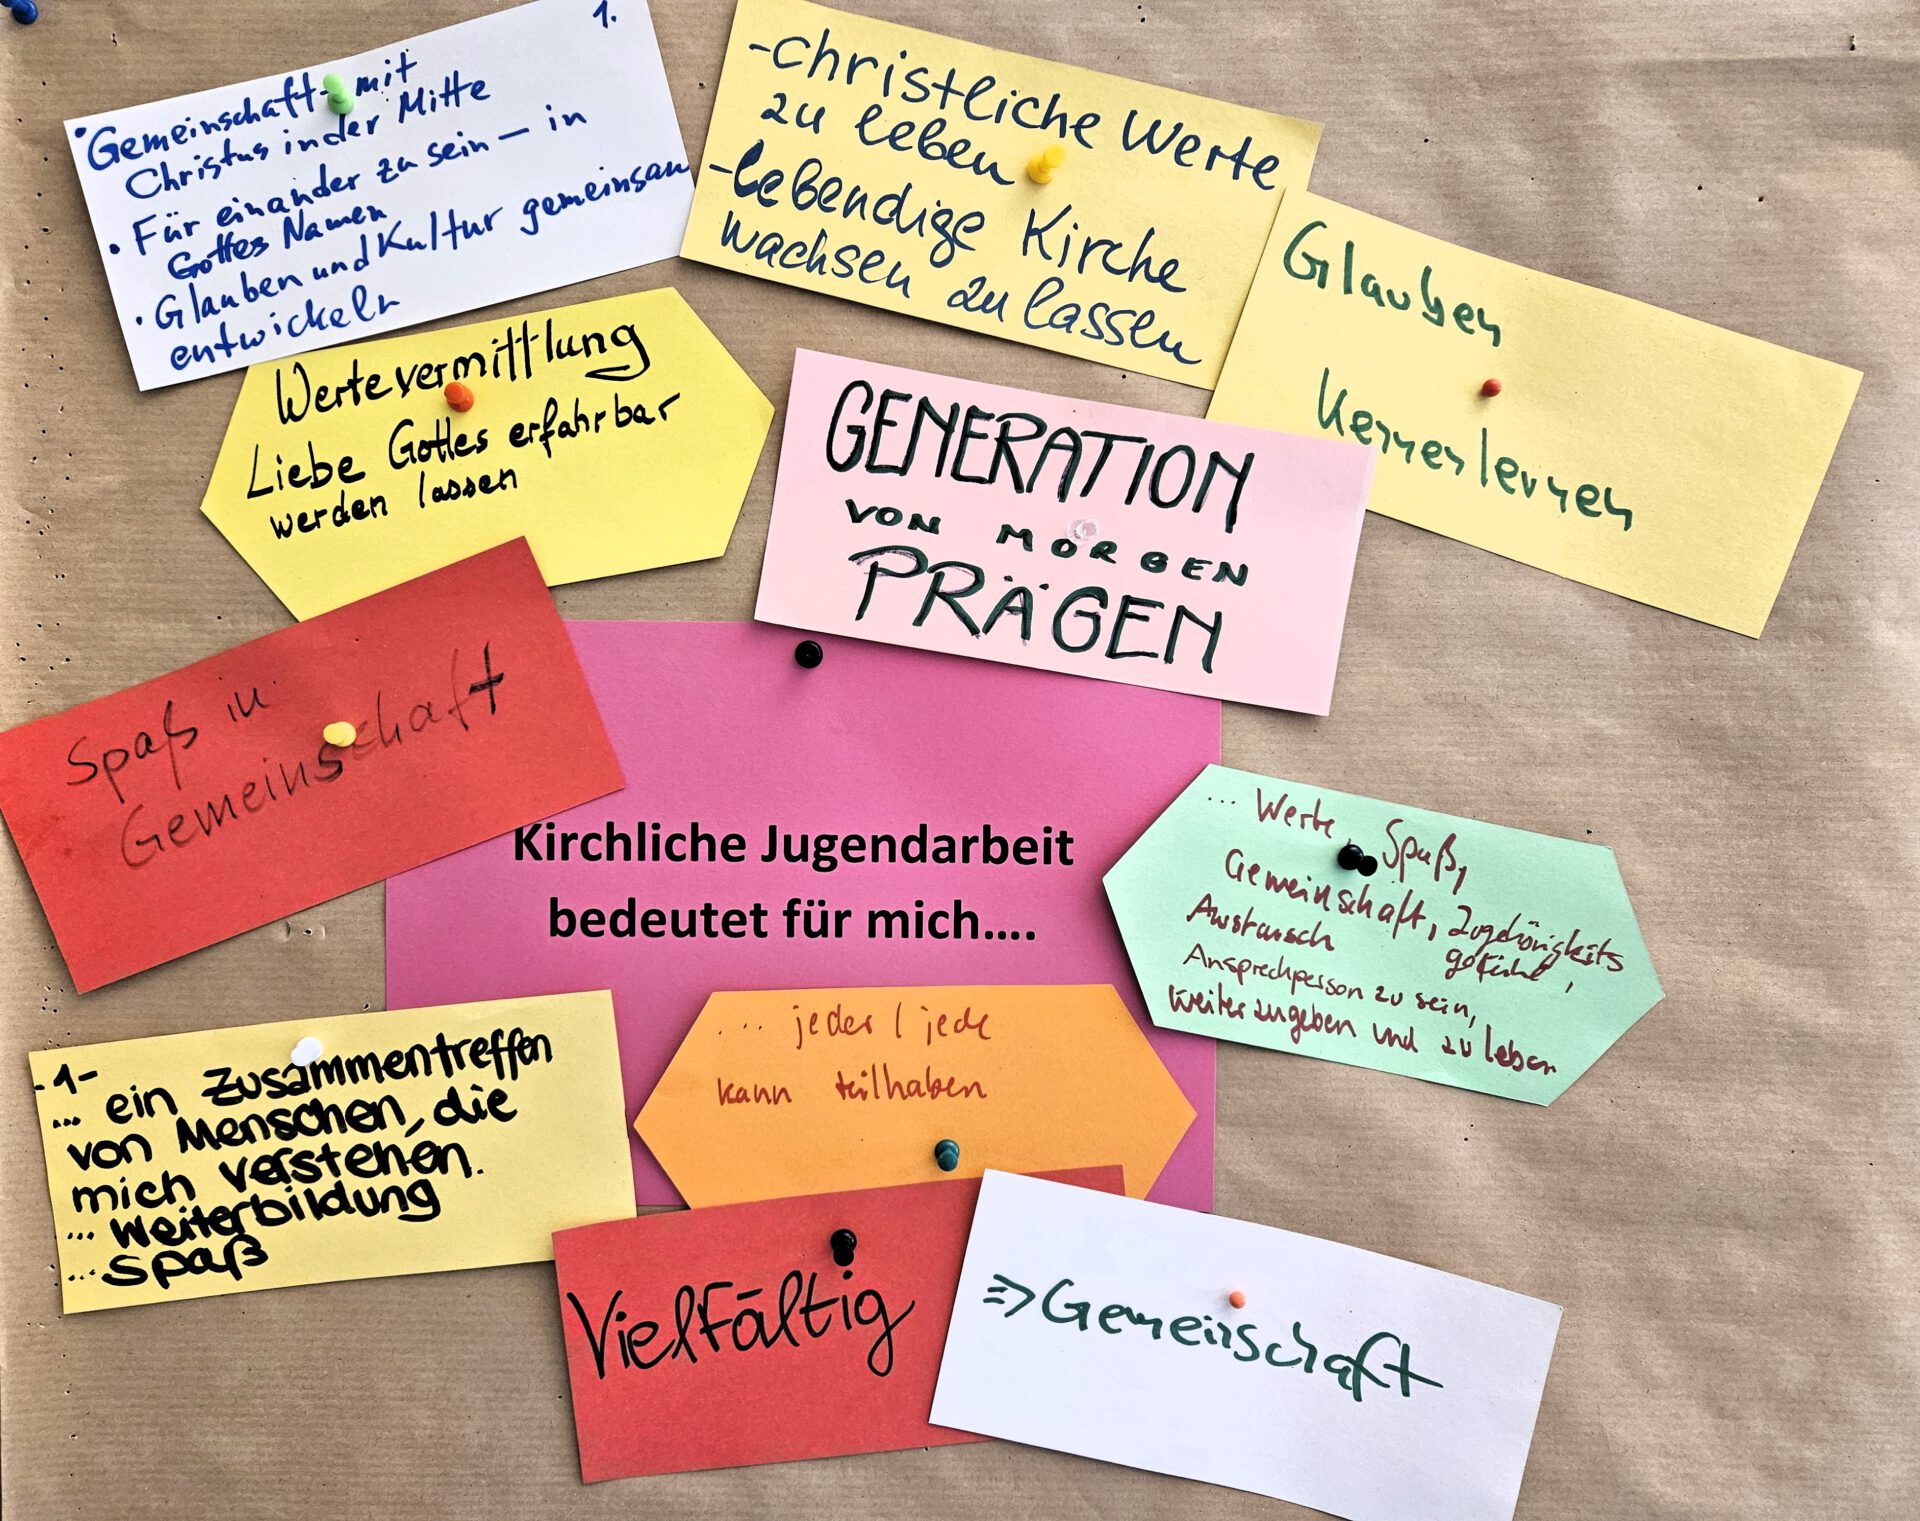 1.
• Gemeinschaft mit
Christus in der Mitte
• Für einander zu sein – in
Gottes Namen
• Glauben und Kultur gemeinsam
entwickeln
- christliche Werte
zu leben
- lebendige Kirche
wachsen zu lassen
Glauben
kennenlernen
Wertevermittlung
Liebe Gottes erfahrbar
werden lassen
GENERATION
VON MORGEN
PRÄGEN
Spaß in
Gemeinschaft
Kirchliche Jugendarbeit
bedeutet für mich....
... Werte, Spaß,
Gemeinschaft, Zugehörigkeits
gefühl,
Austausch
Ansprechperson zu sein,
weiterzugeben und zu leben
-1-
... ein Zusammentreffen
von Menschen, die
mich verstehen.
... Weiterbildung
... Spaß
... jeder / jede
kann teilhaben
Vielfältig
=> Gemeinschaft